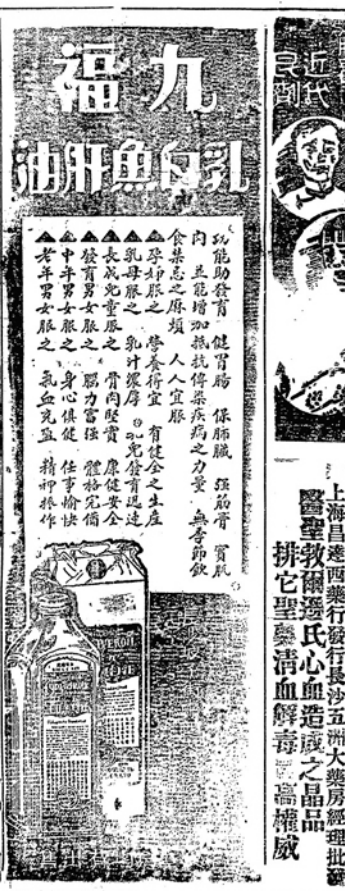 九福
乳白魚肝油
功能助發育 健胃腸 保肺臟 强筋骨 實肌
肉 並能增加抵抗傳染疾病之力量 無季節飲
食禁忌之麻煩 人人宜服
孕婦服之 營養得宜 有健全之生產
乳母服之 乳汁濃厚 乳兒發育迅速
長成兒童服之 骨肉堅實 康健安全
發育男女服之 腦力富强 體格完備
中年男女服之 身心俱健 任事愉快
老年男女服之 氣血充盈 精神振作
近代
上海昌達西藥行發行長沙五洲大藥房經理批發
醫聖敦爾遜氏心血造成之晶品
排它聖藥清血解毒 高權威